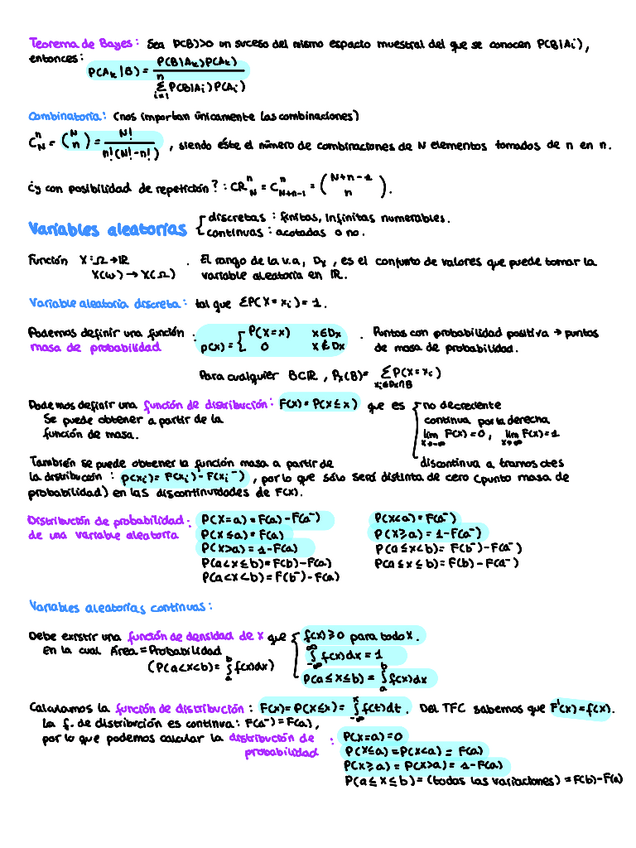 Teorema de Bayes: Sea P(B)>0 un suceso del mismo espacio muestral del que se conocen P(B|Ai),
entonces: P(Ak|B) = P(B|Ak)P(Ak) / Σ_{i=1}^{n} P(B|Ai)P(Ai)
Combinatoria: (nos importan únicamente las combinaciones)
C_N^n = (N n) = N! / n!(N!-n!) , siendo éste el número de combinaciones de N elementos tomados de n en n.
¿y con posibilidad de repetición? : CR_N^n = C_{N+n-1}^n = (N+n-1 n).
Variables aleatorias { discretas: finitas, infinitas numerables.
continuas: acotadas o no.
Función X:Ω→ℝ . El rango de la v.a, Dx, es el conjunto de valores que puede tomar la
X(ω) → X(Ω) variable aleatoria en ℝ.
Variable aleatoria discreta: tal que ΣP(X=xi)=1.
Podemos definir una función masa de probabilidad : p(x) = { P(X=x) x∈Dx
0 x∉Dx . Puntos con probabilidad positiva → puntos
de masa de probabilidad.
Para cualquier B⊂ℝ, Px(B)= Σ_{xi∈Dx∩B} P(X=xi)
Podemos definir una función de distribución: F(x)=P(X≤x) que es { no decreciente
Se puede obtener a partir de la continua por la derecha
función de masa. lim_{x→-∞} F(x)=0, lim_{x→∞} F(x)=1
También se puede obtener la función masa a partir de discontinua a tramos ctes
la distribución: p(xi)=F(xi)-F(xi⁻), por lo que sólo será distinta de cero (punto masa de
probabilidad) en las discontinuidades de F(x).
Distribución de probabilidad: P(X=a)=F(a)-F(a⁻) P(X<a)=F(a⁻)
de una variable aleatoria P(X≤a)=F(a) P(X≥a)=1-F(a⁻)
P(X>a)=1-F(a) P(a≤X<b)=F(b⁻)-F(a⁻)
P(a<X≤b)=F(b)-F(a) P(a≤X≤b)=F(b)-F(a⁻)
P(a<X<b)=F(b⁻)-F(a)
Variables aleatorias continuas:
Debe existir una función de densidad de X que { f(x)≥0 para todo x.
en la cual Área=Probabilidad ∫_{-∞}^{∞} f(x)dx=1
(P(a<X<b)=∫_a^b f(x)dx) P(a≤X≤b)=∫_a^b f(x)dx
Calculamos la función de distribución: F(x)=P(X≤x)=∫_{-∞}^x f(t)dt. Del TFC sabemos que F'(x)=f(x).
La f. de distribución es continua: F(a⁻)=F(a),
por lo que podemos calcular la distribución de : P(X=a)=0
probabilidad P(X≤a)=P(X<a)=F(a)
P(X≥a)=P(X>a)=1-F(a)
P(a≤X≤b)=(todas las variaciones)=F(b)-F(a)